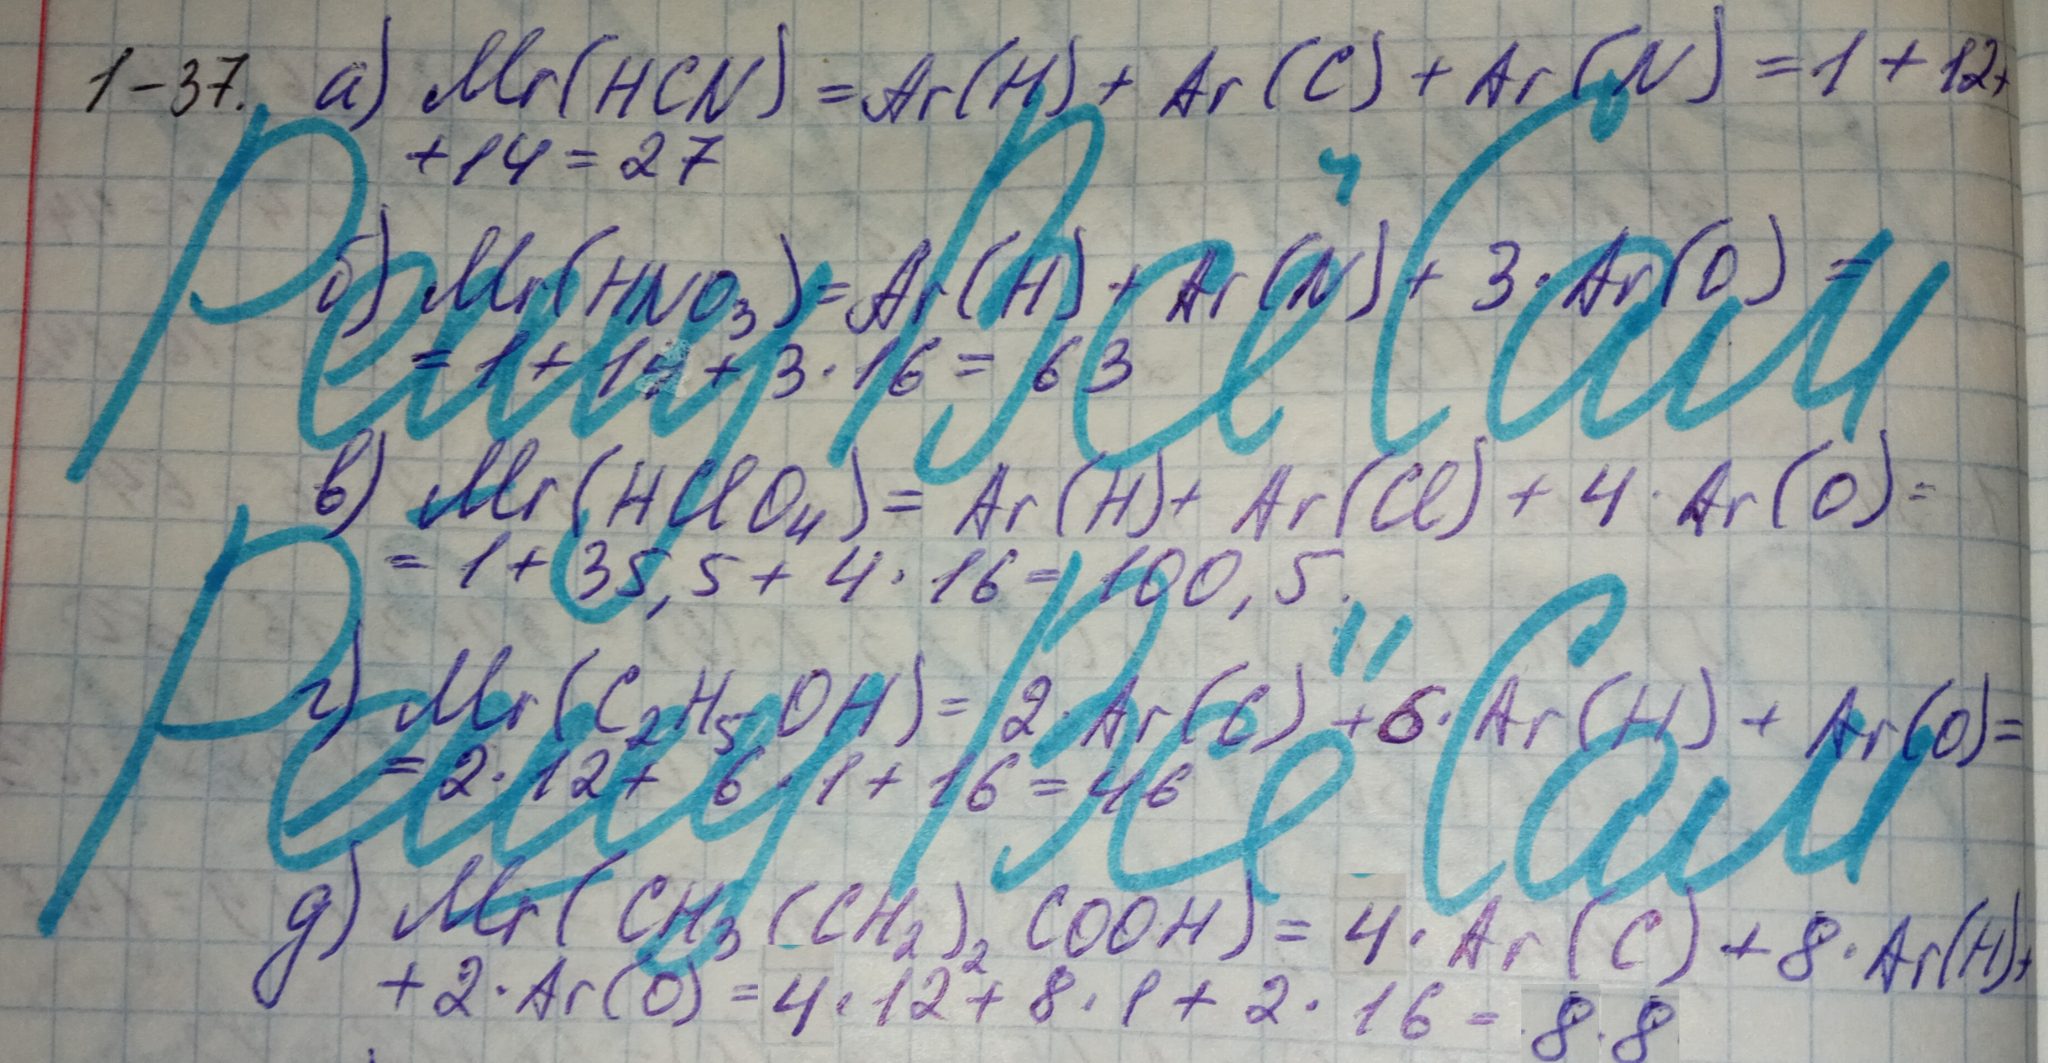 1-37. а) Mr(HCN) = Ar(H) + Ar(C) + Ar(N) = 1 + 12+
+14 = 27
б) Mr(HNO₃) = Ar(H) + Ar(N) + 3·Ar(O) =
= 1 + 14 + 3·16 = 63
в) Mr(HClO₄) = Ar(H) + Ar(Cl) + 4·Ar(O) =
= 1 + 35,5 + 4·16 = 100,5.
г) Mr(C₂H₅OH) = 2·Ar(C) + 6·Ar(H) + Ar(O) =
= 2·12 + 6·1 + 16 = 46
д) Mr(CH₃(CH₂)₂COOH) = 4·Ar(C) + 8·Ar(H)+
+ 2·Ar(O) = 4·12 + 8·1 + 2·16 = 8.8
Решу Всё Сам
Решу Всё Сам